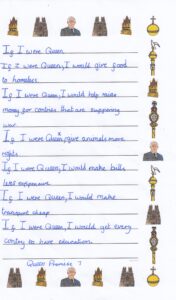 If I were Queen
If I were Queen, I would give food
to homeless.
If I were Queen, I would help raise
money for contries that are suppering
war.
If I were Queen, give animals more
rights
If I were Queen, I would make bills
less expensive
If I were Queen, I would make
transport cheap
If I were Queen, I would get every
contry to have education.
Queen Promise 7